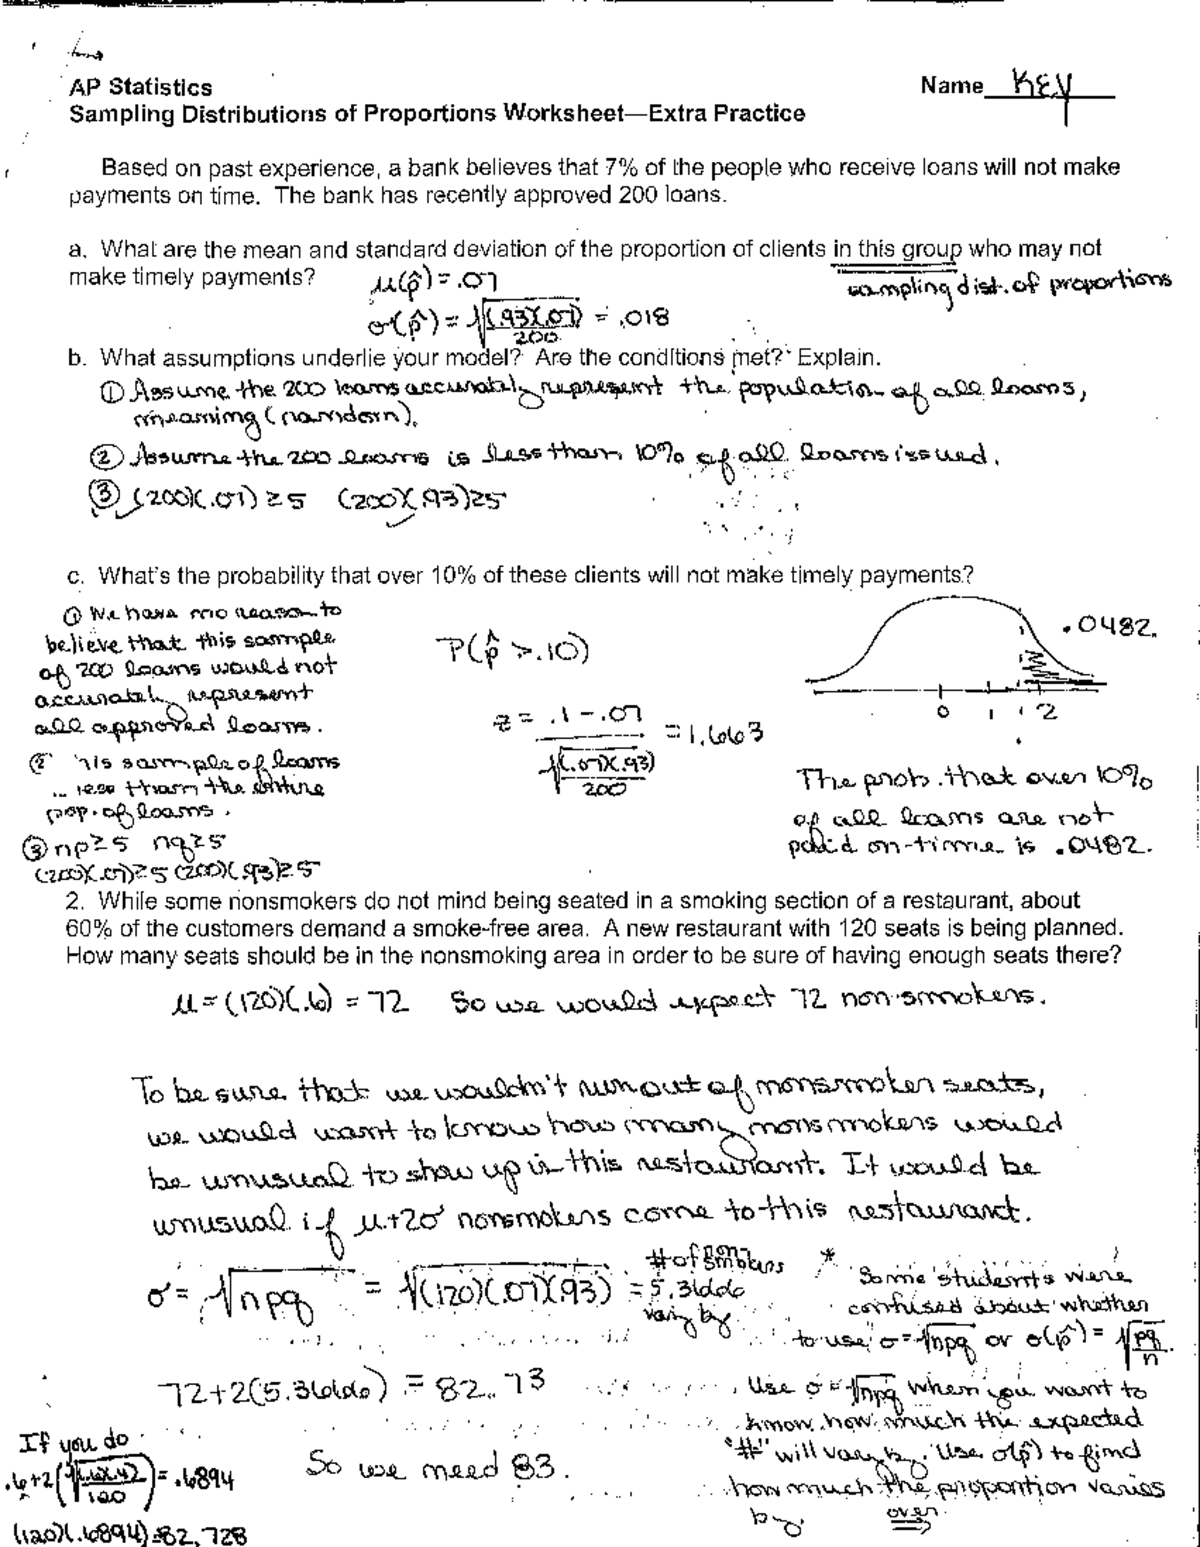 AP Statistics
Name KEY
Sampling Distributions of Proportions Worksheet—Extra Practice
Based on past experience, a bank believes that 7% of the people who receive loans will not make
payments on time. The bank has recently approved 200 loans.
a. What are the mean and standard deviation of the proportion of clients in this group who may not
make timely payments?
μ(p̂) = .07
sampling dist. of proportions
σ(p̂) = √((.93)(.07)/200) = .018
b. What assumptions underlie your model? Are the conditions met? Explain.
① Assume the 200 loans accurately represent the population of all loans,
meaning (random).
② Assume the 200 loans is less than 10% of all loans issued.
③ (200)(.07) ≥ 5 (200)(.93) ≥ 5
c. What's the probability that over 10% of these clients will not make timely payments?
① We have no reason to
believe that this sample
of 200 loans would not
accurately represent
all approved loans.
② sample of loans
less than the entire
pop. of loans.
③ np ≥ 5 nq ≥ 5
(200)(.07) ≥ 5 (200)(.93) ≥ 5
P(p̂ > .10)
z = (.1 - .07)/√((.07)(.93)/200) = 1.663
.0482.
0 1 2
The prob. that over 10%
of all loans are not
paid on-time is .0482.
2. While some nonsmokers do not mind being seated in a smoking section of a restaurant, about
60% of the customers demand a smoke-free area. A new restaurant with 120 seats is being planned.
How many seats should be in the nonsmoking area in order to be sure of having enough seats there?
μ = (120)(.6) = 72 So we would expect 72 non-smokers.
To be sure that we wouldn't run out of nonsmoker seats,
we would want to know how many nonsmokers would
be unusual to show up in this restaurant. It would be
unusual if μ+2σ nonsmokers come to this restaurant.
σ = √npq = √(120)(.07)(.93) = 5.3666
# of non-smokers
vary by
72+2(5.3666) = 82.73
So we need 83.
If you do
.6+2(√((.6)(.4)/120)) = .6894
(120)(.6894)=82.728
* Some students were
confused about whether
to use σ=√npq or σ(p̂)=√(pq/n).
Use σ=√npq when you want to
know how much the expected
"#" will vary by. Use σ(p̂) to find
how much the proportion varies
by.
over ⇒